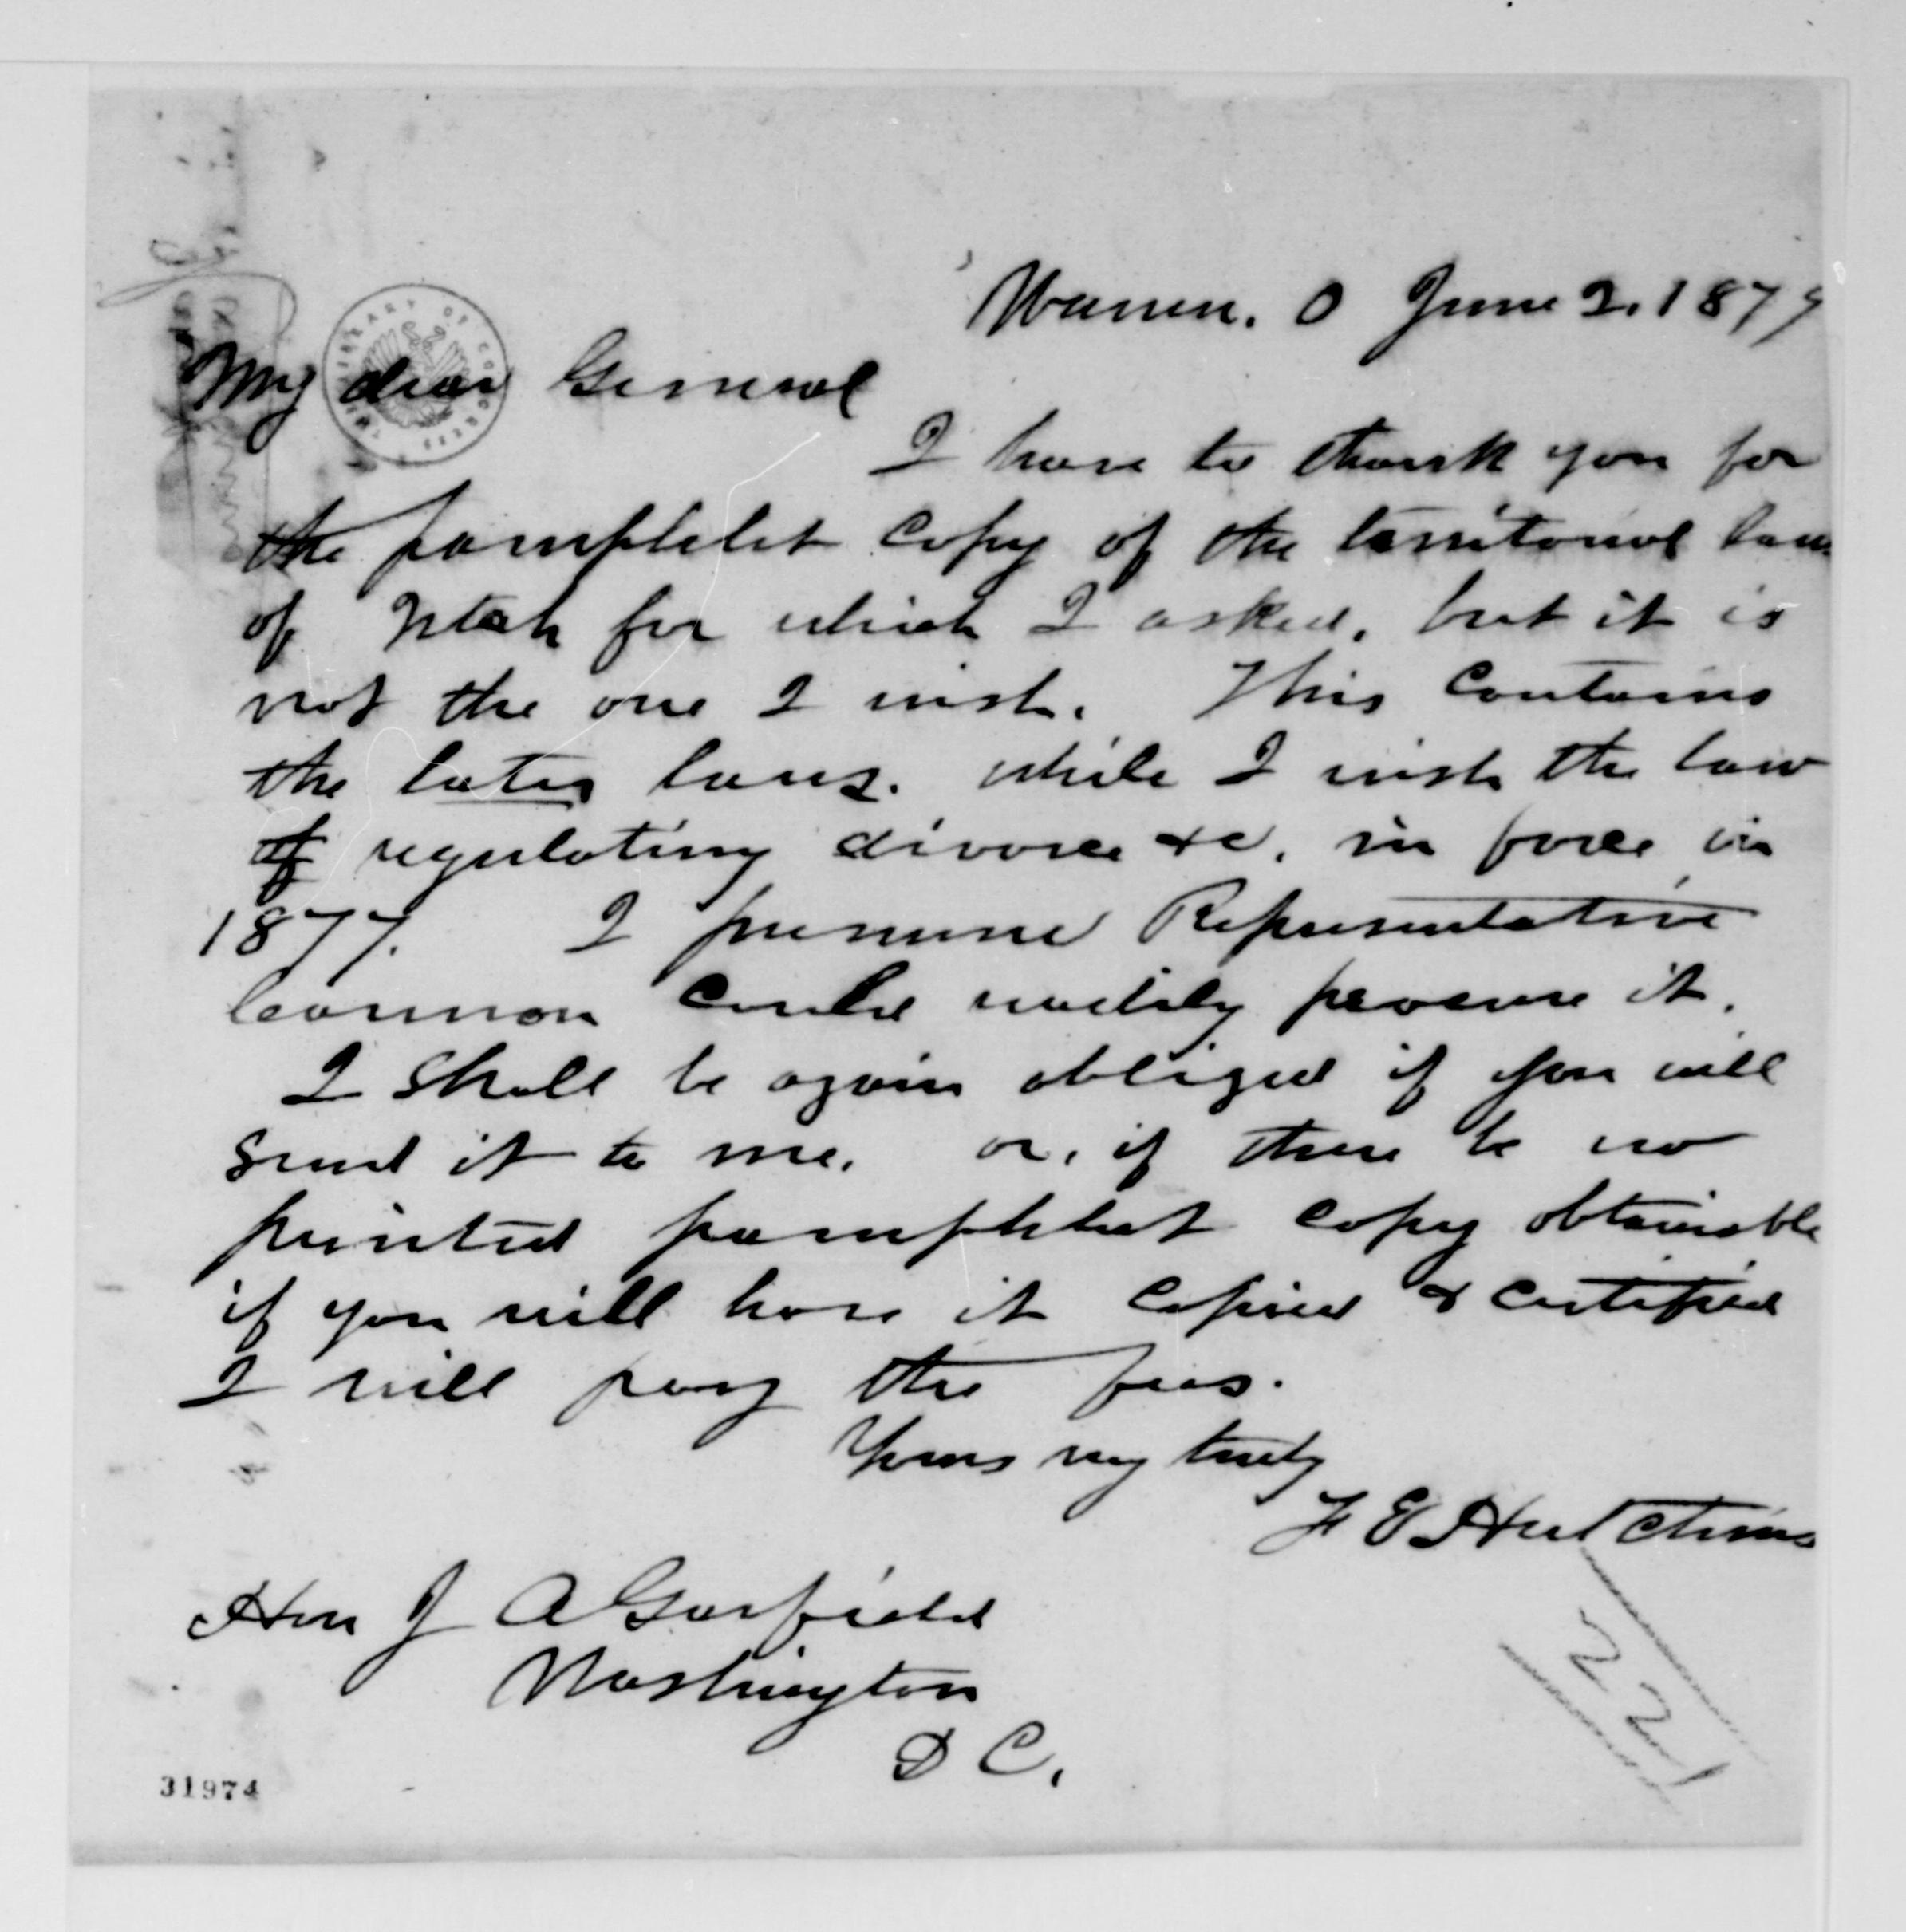 Warren. O June 2. 1879
My dear General
THE LIBRARY OF CONGRESS
I have to thank you for
the pamphlet copy of the territorial laws
of Utah for which I asked, but it is
not the one I wish. This contains
the later laws. while I wish the law
of regulating divorce &c. in force in
1877. I presume Representative
Cannon could readily procure it.
I shall be again obliged if you will
send it to me. or, if there be no
printed pamphlet copy obtainable
if you will have it copied & certified
I will pay the fees.
Yours very truly
F E Hutchins
Hon J A Garfield
Washington
D C.
221
31974